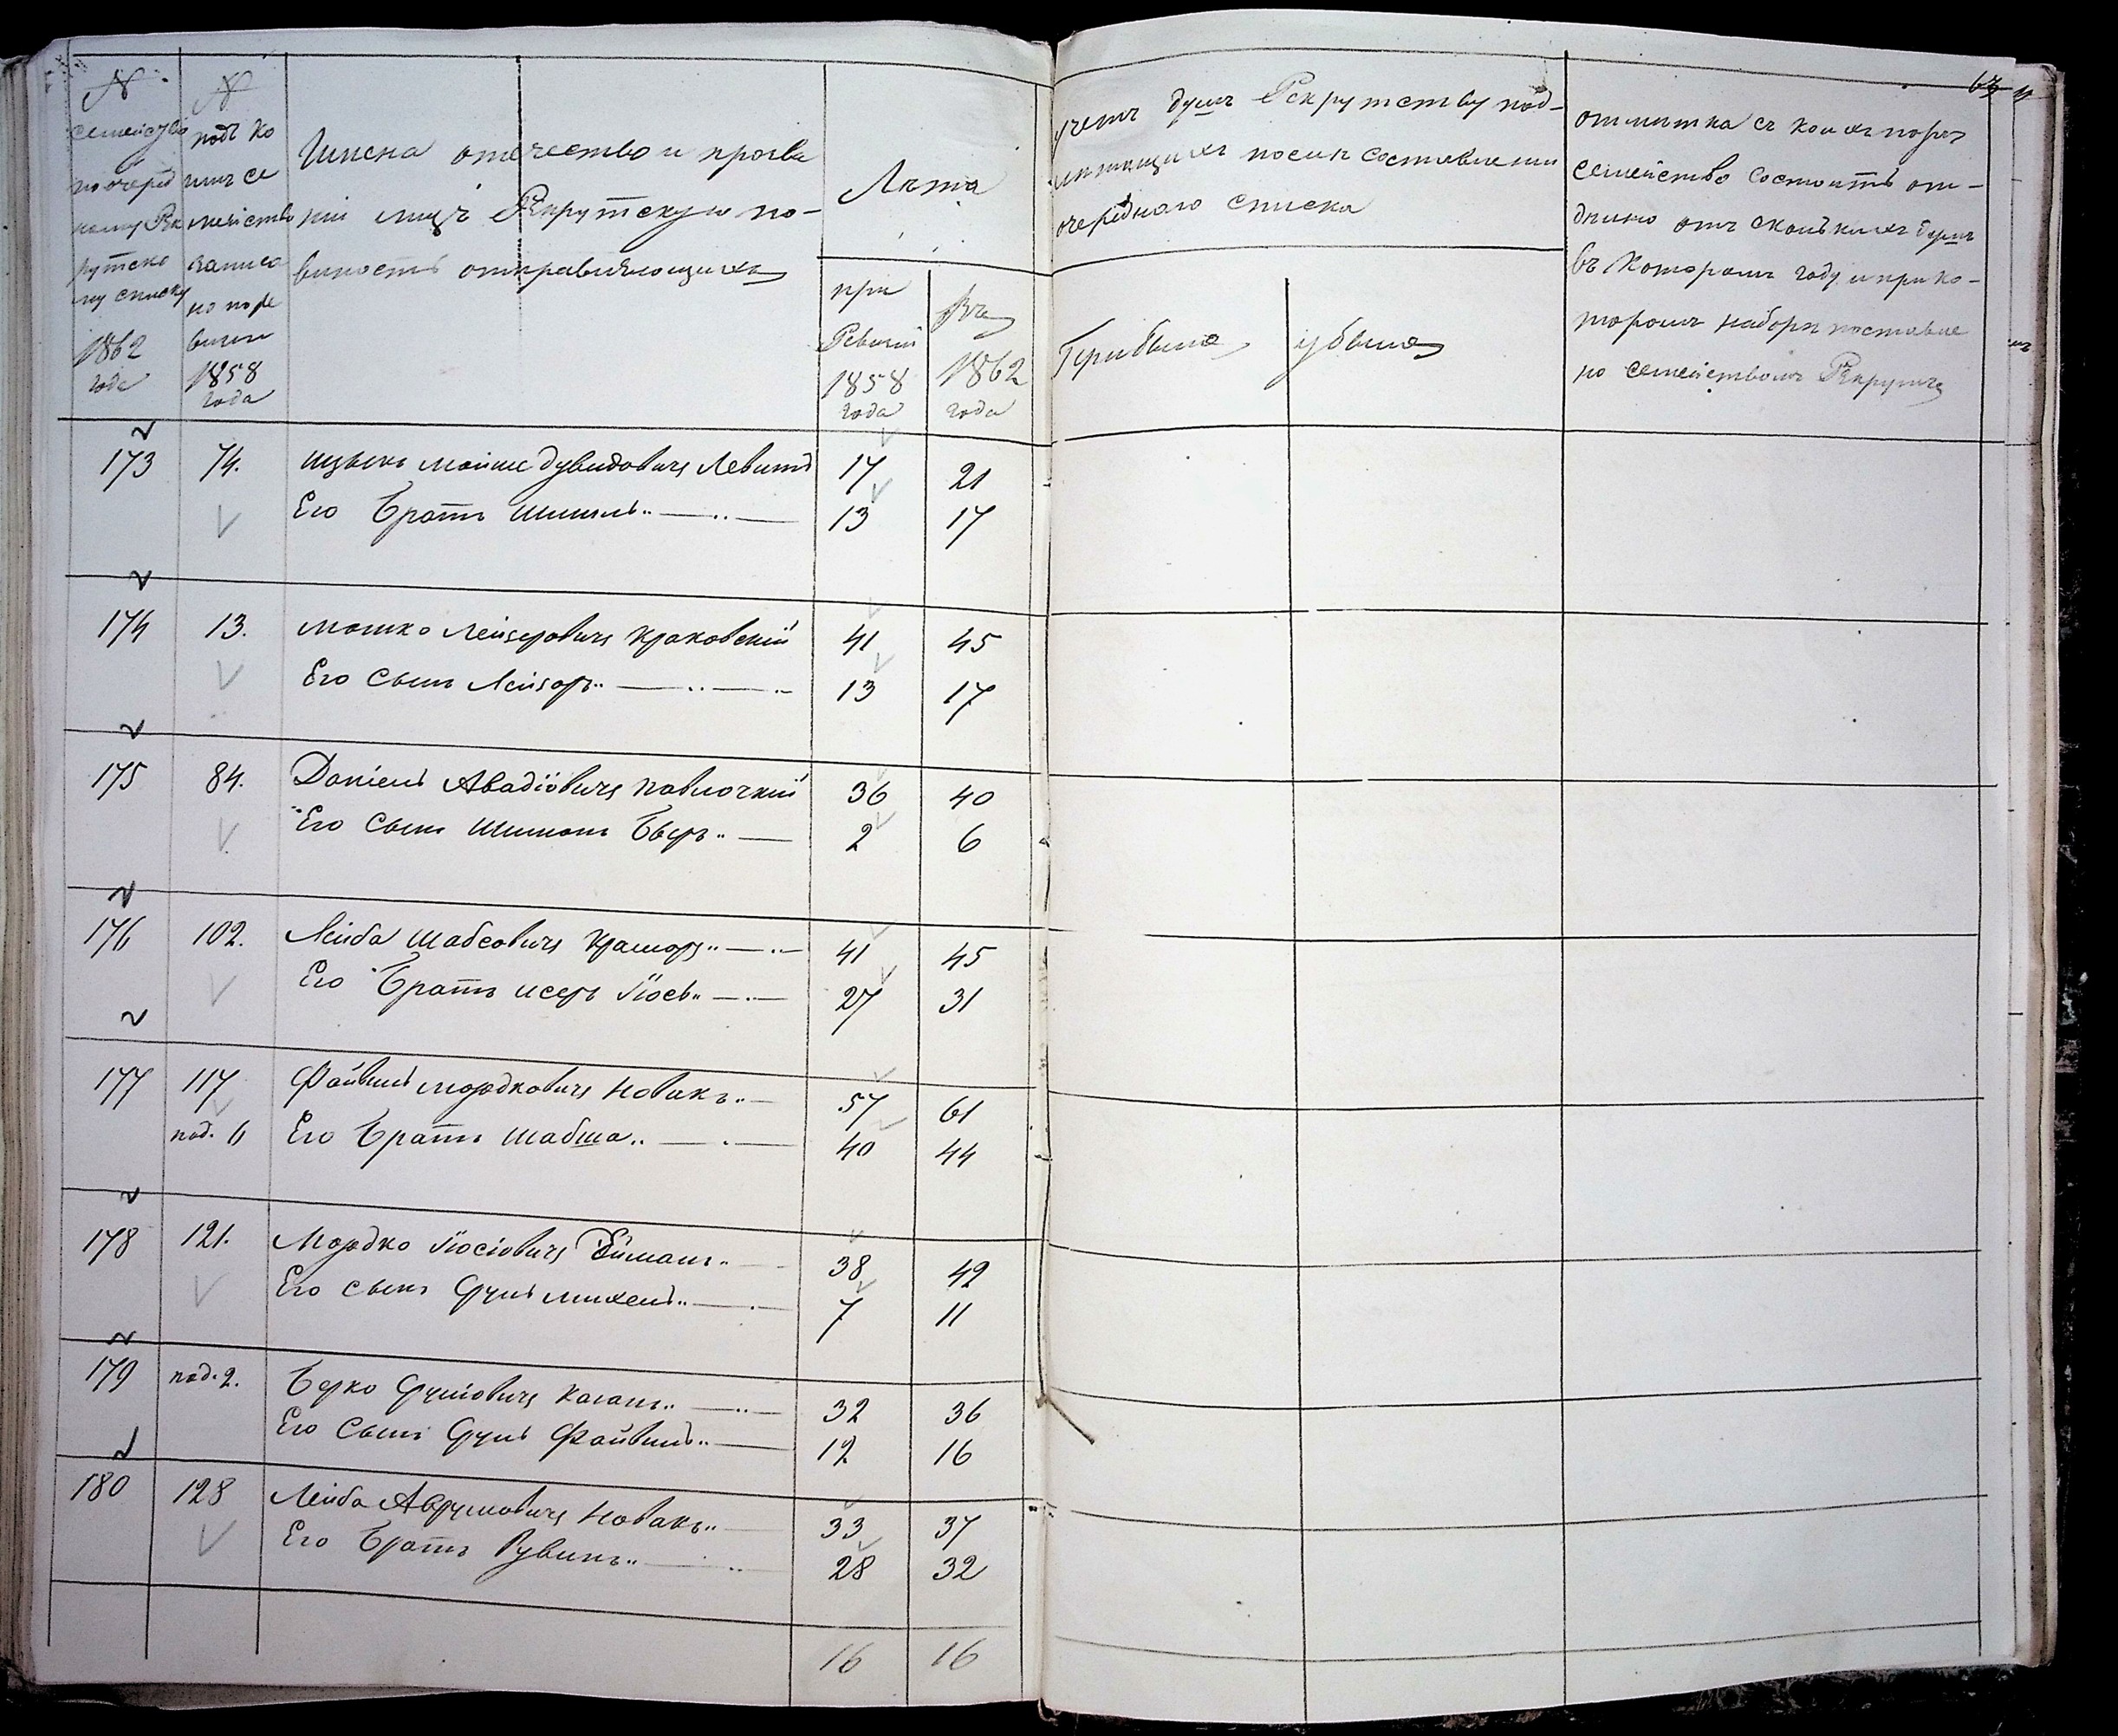 N
семейства
по очеред
ному Рек
рутско
му списку
1862
года
N
подъ ко
имъ се
мейство
записа
но по ре
визіи
1858
года
Имена отечество и прозва
нія лицъ Рекрутскую по-
винность отправляющихъ
Лѣта
при
Ревизіи
1858
года
въ
1862
года
учетъ душъ Рекрутству под-
лежащихъ послѣ составленія
очереднаго списка
Прибыло
убыло
63
отмѣтка съ коихъ поръ
семейство состоитъ от-
дѣльно отъ сколькихъ душъ
въ которомъ году и при ко-
торомъ наборѣ поставле
но семействомъ Рекрутъ
173 74. Ицько Мойше Дувидовичъ Левитъ 17 21
Его Братъ Шмиль 13 17
174 13. Мошко Лейзеровичъ Краковскій 41 45
Его Сынъ Лейзоръ 13 17
175 84. Даніель Авадіовичъ Паволочкій 36 40
Его Сынъ Шимонъ Беръ 2 6
176 102. Лейба Шабсовичъ Крамаръ 41 45
Его Братъ Исеръ Іось 27 31
177 117 Файвишъ Мордковичъ Новакъ 57 61
под. 6 Его Братъ Шабша 40 44
178 121. Мордко Іосіовичъ 38 42
Его Сынъ Сруль Михель 7 11
179 под. 2. Берко Сруліовичъ Каганъ 32 36
Его Сынъ Сруль Файвишъ 12 16
180 128 Лейба Аврумовичъ Новакъ 33 37
Его Братъ Рувинъ 28 32
16 16